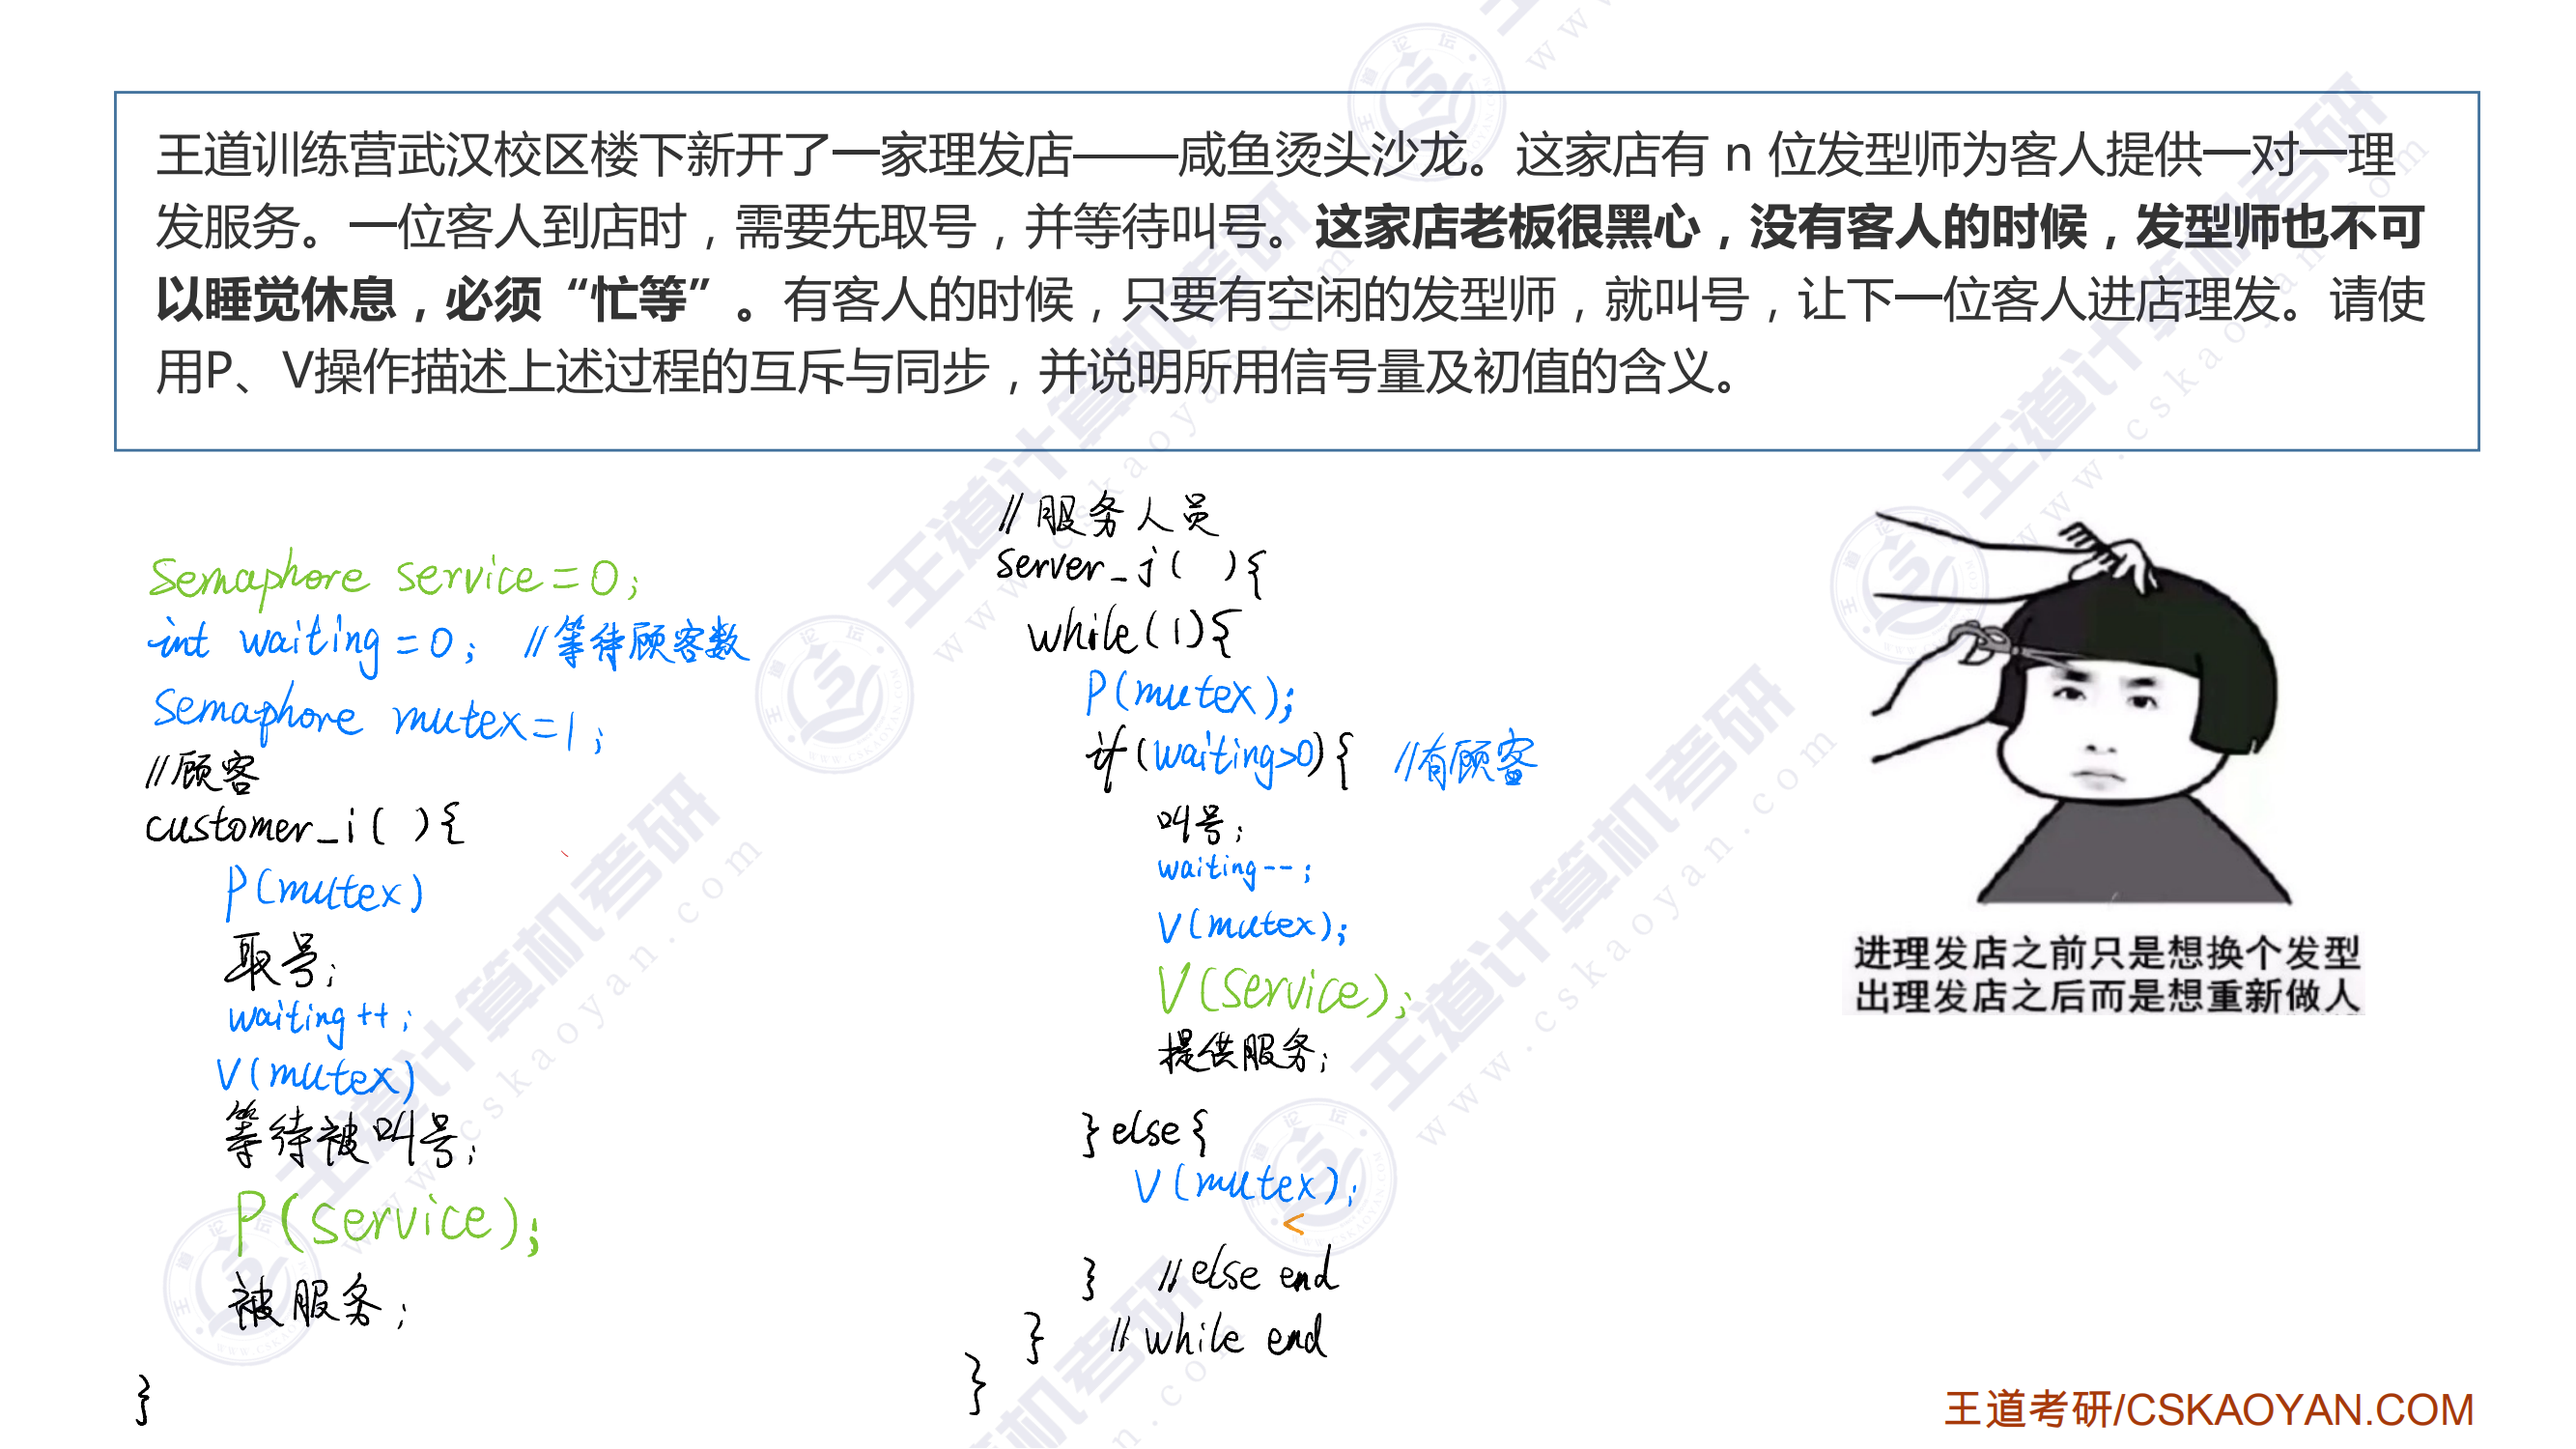 王道训练营武汉校区楼下新开了一家理发店——咸鱼烫头沙龙。这家店有 n 位发型师为客人提供一对一理
发服务。一位客人到店时，需要先取号，并等待叫号。这家店老板很黑心，没有客人的时候，发型师也不可
以睡觉休息，必须“忙等”。有客人的时候，只要有空闲的发型师，就叫号，让下一位客人进店理发。请使
用P、V操作描述上述过程的互斥与同步，并说明所用信号量及初值的含义。
Semaphore service=0;
int waiting=0; //等待顾客数
Semaphore mutex=1;
//顾客
customer_i( ){
P(mutex)
取号;
waiting++;
V(mutex)
等待被叫号;
P(service);
被服务;
}
//服务人员
server_j( ){
while(1){
P(mutex);
if(waiting>0){ //有顾客
叫号;
waiting--;
V(mutex);
V(service);
提供服务;
}else{
V(mutex);
<
} //else end
} //while end
}
进理发店之前只是想换个发型
出理发店之后而是想重新做人
王道考研/CSKAOYAN.COM
王道计算机考研
www.cskaoyan.com